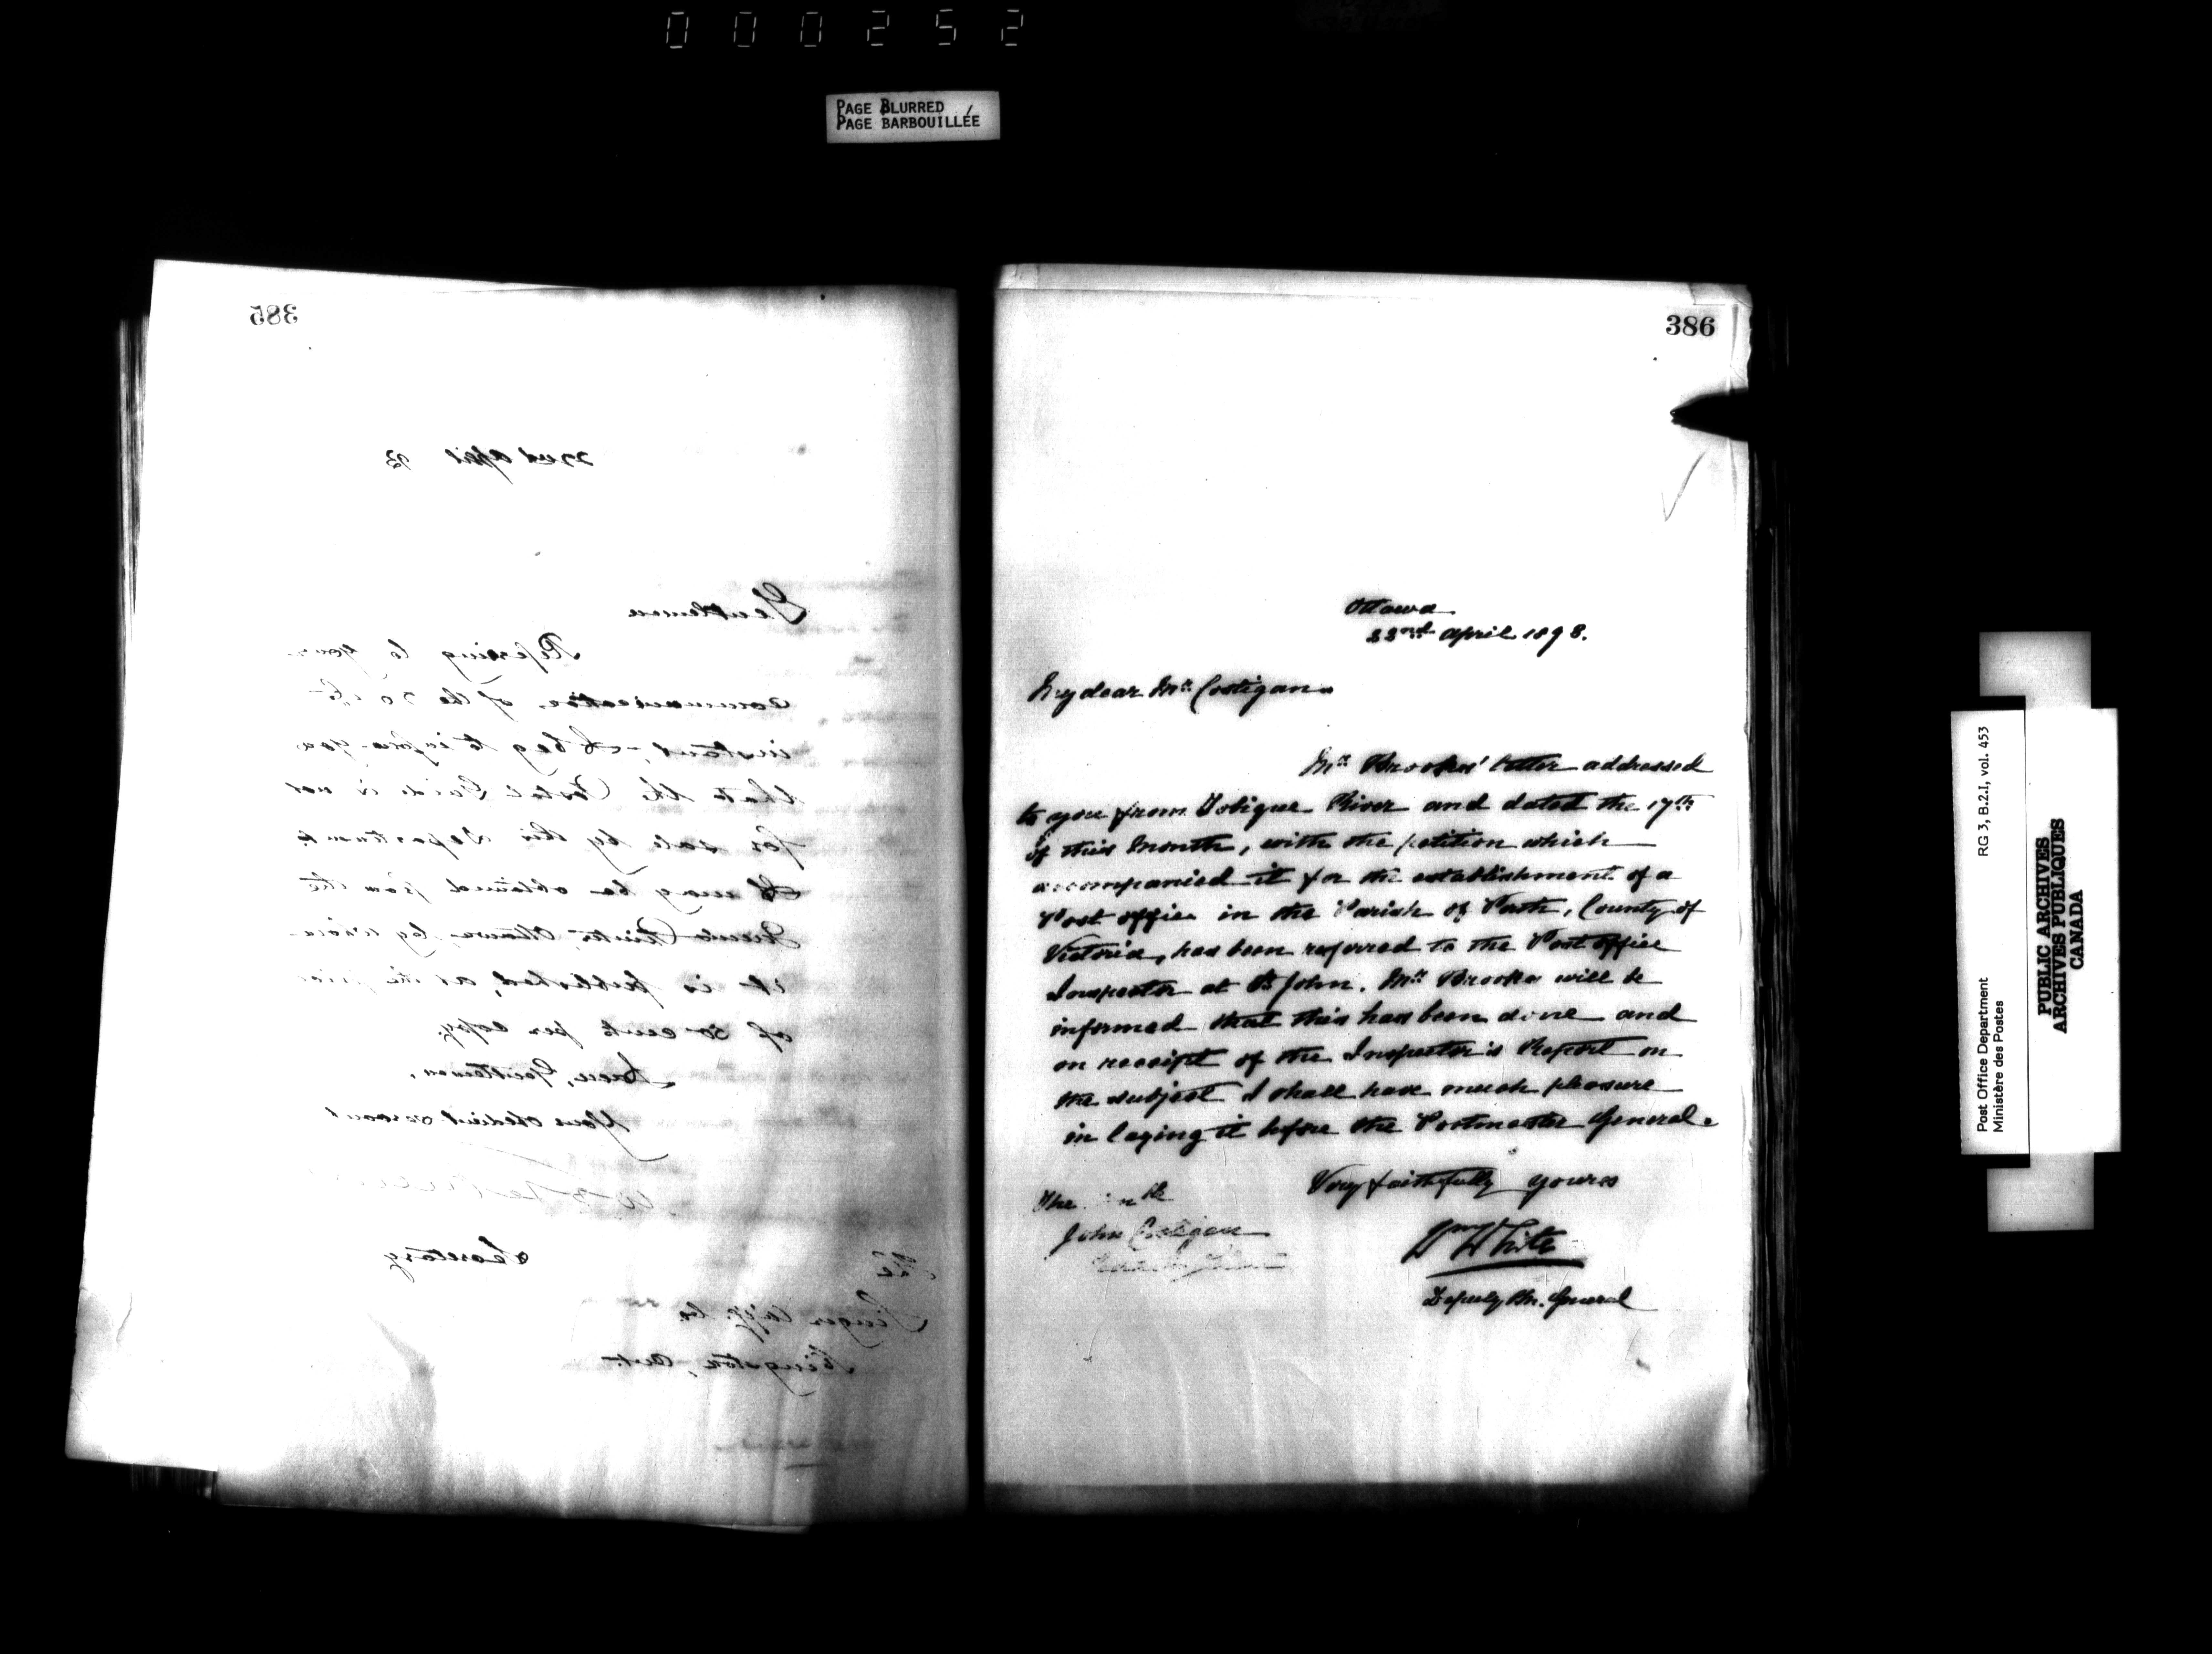 000252
PAGE BLURRED
PAGE BARBOUILLÉE
385
22nd April 93
Gentlemen
Referring to your
communication of the 20th
instant, I beg to inform you
that the Postal Guide is not
for sale by this Department.
It may be obtained from the
Queen's Printer, Ottawa, by whom
it is published, at the price
of 50 cents per copy.
I am, Gentlemen,
Your obedient servant
Secretary
The
Singer Mfg. Co.
Kingston, Ont.
386
Ottawa
22nd April 1893.
My dear Mr Costigan
Mr Brooks' letter addressed
to you from Tobique River and dated the 17th
of this month, with the petition which
accompanied it for the establishment of a
Post office in the Parish of Perth, County of
Victoria, has been referred to the Post office
Inspector at St John. Mr Brooks will be
informed that this has been done and
on receipt of the Inspector's Report on
the subject I shall have much pleasure
in laying it before the Postmaster General.
Very faithfully yours
The Honble
John Costigan
Wm White
Deputy P.M. General
Post Office Department RG 3, B.2.I, vol. 453
Ministère des Postes
PUBLIC ARCHIVES
ARCHIVES PUBLIQUES
CANADA